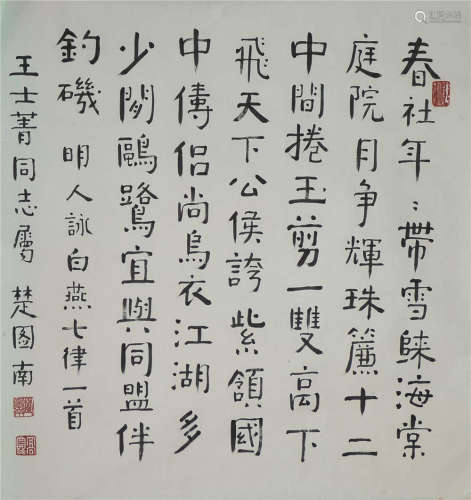 春社年〻帶雪歸海棠
庭院月争輝珠簾十二
中間捲玉剪一雙高下
飛天下公侯誇紫頷國
中儔侣尚烏衣江湖多
少閒鷗鷺宜與同盟伴
釣磯 明人詠白燕七律一首
王士菁同志屬 楚图南